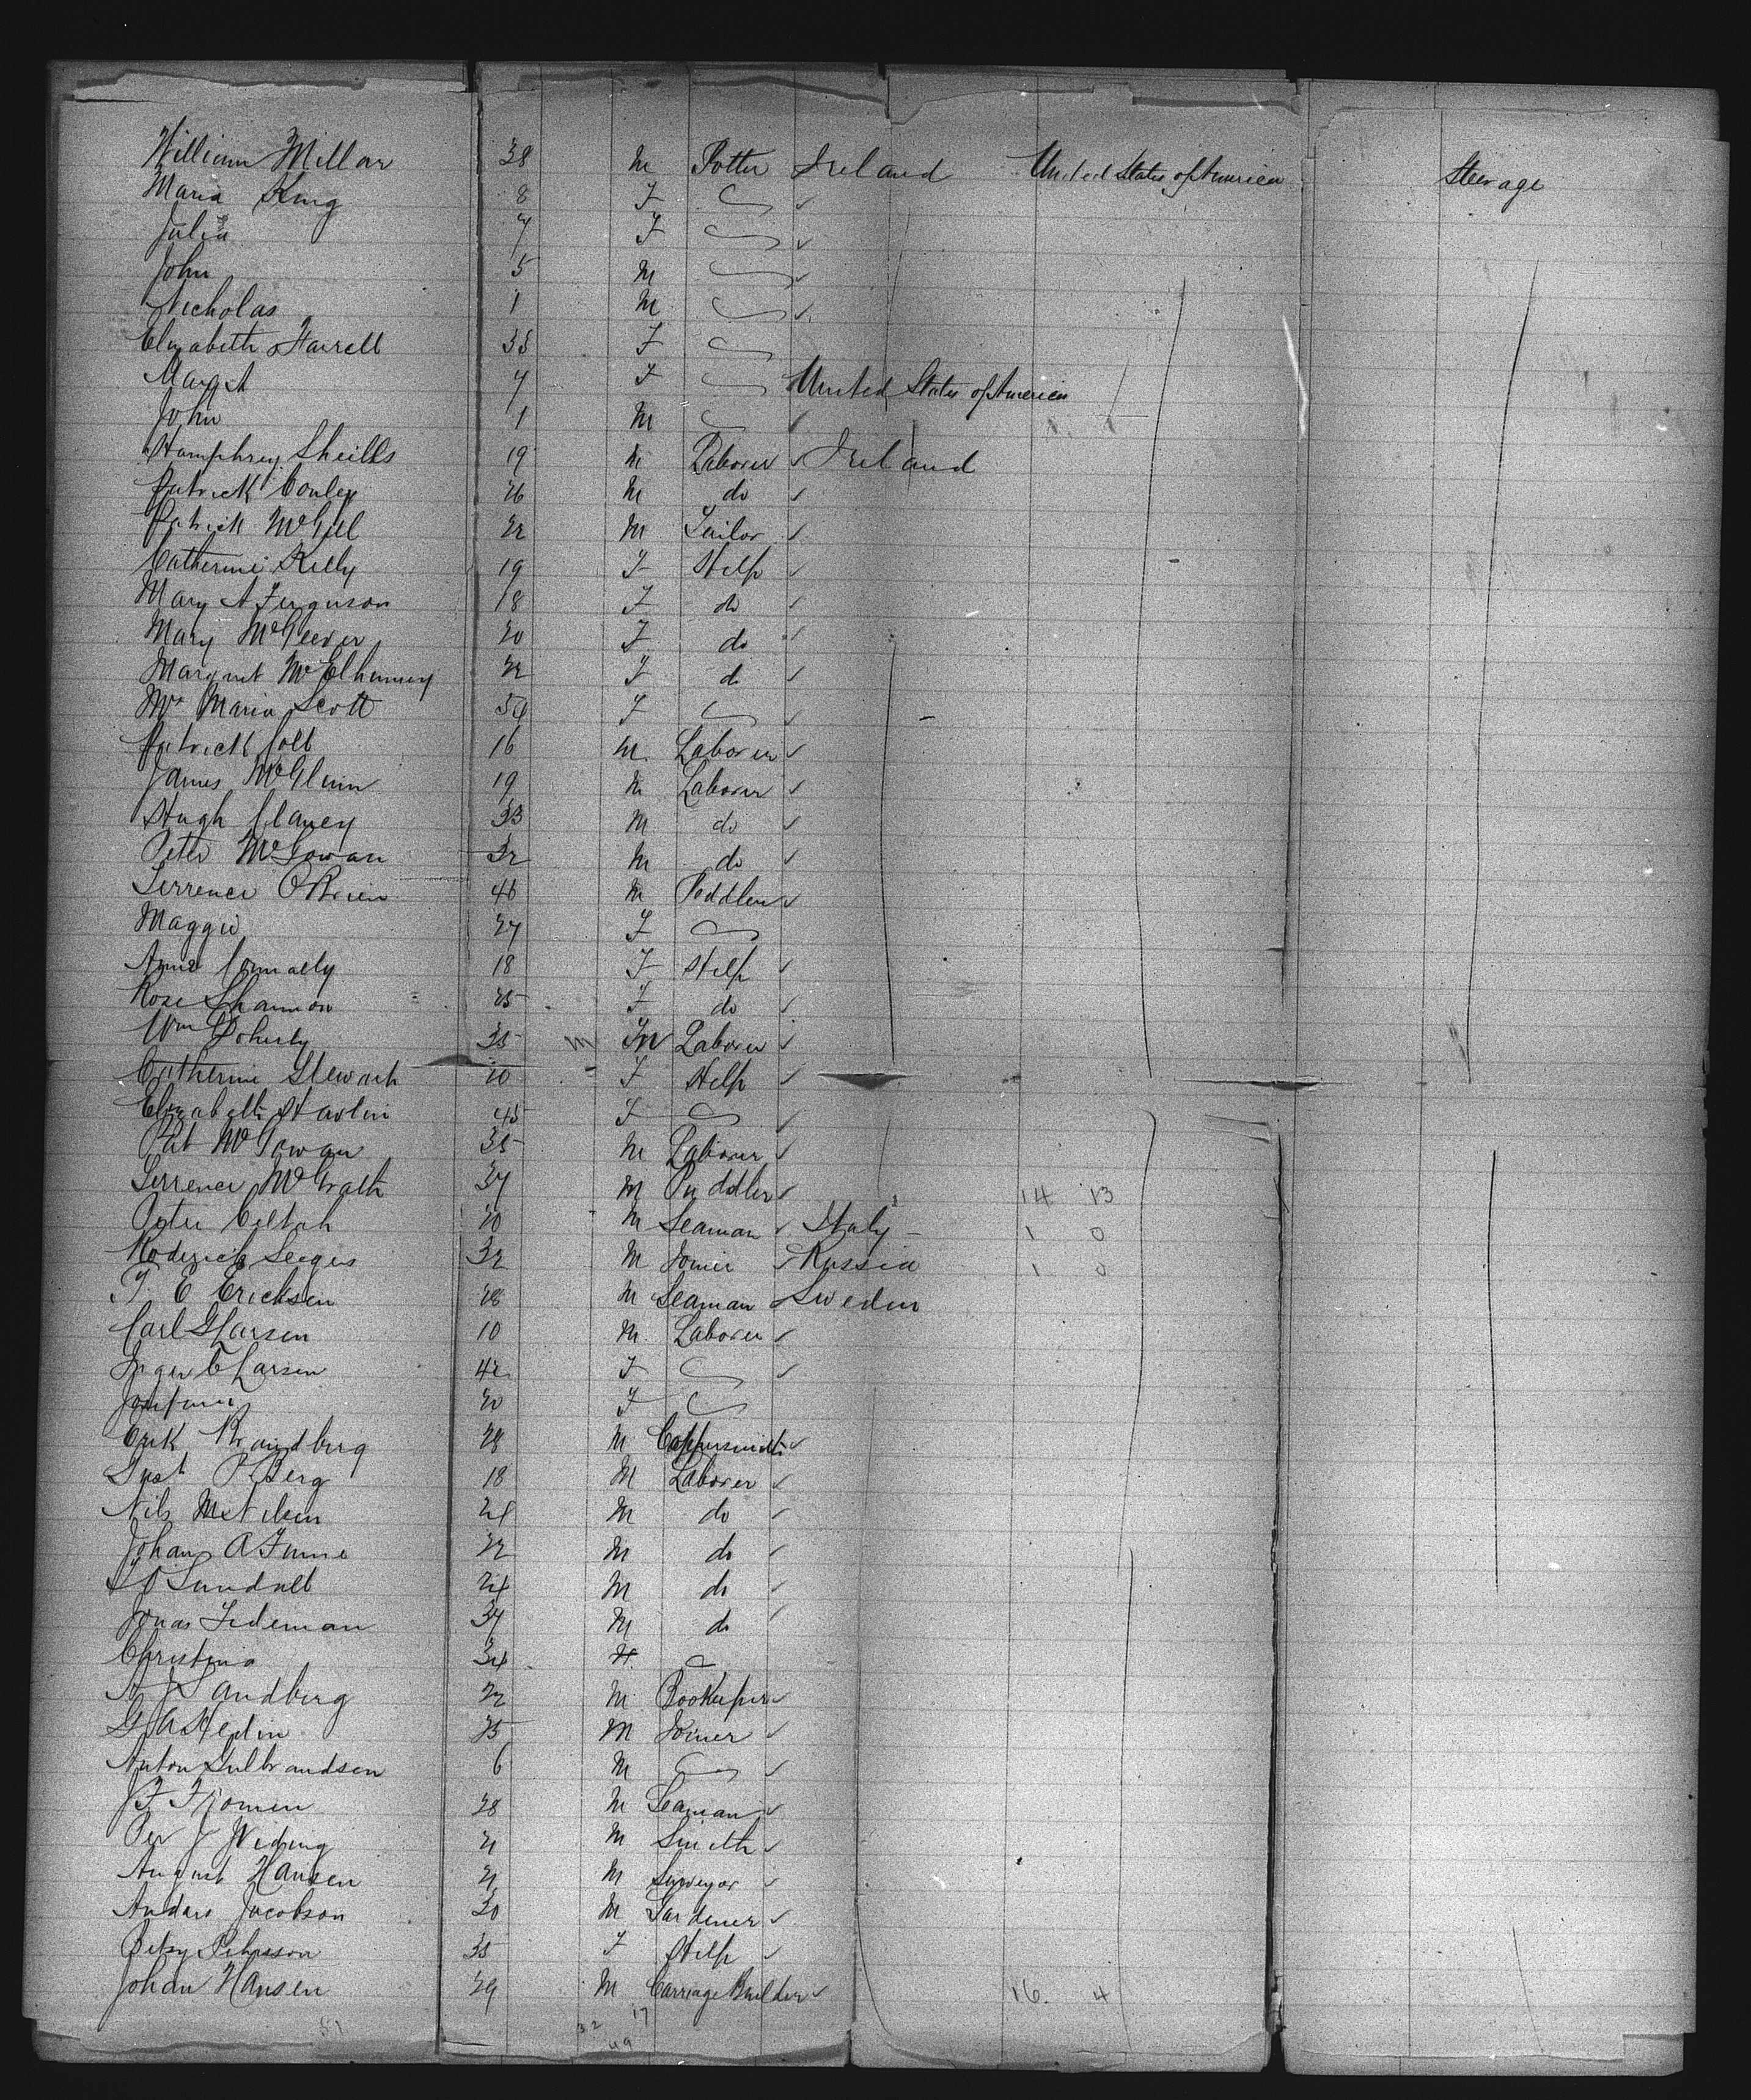 William Millar 38 M Potter Ireland United States of America Steerage
Maria King 8 F
Julia 7 F
John 5 M
Nicholas 1 M
Elizabeth Farrell 35 F
Margt 4 F United States of America
John 1 M
Humphrey Sheills 19 M Laborer Ireland
Patrick Conley 26 M do
Patrick McGill 22 M Tailor
Catherine Kelly 19 F Help
Mary A Ferguson 18 F do
Mary McGeever 20 F do
Margaret McElhinney 22 F do
Maria Scott 54 F
Patrick 16 M Laborer
James McGlinn 19 M Laborer
Hugh Clancy 33 M do
Peter McGowan 32 M do
Terrence O'Brien 46 M Peddler
Maggie 27 F
Anne Connolly 18 F Help
Rose Shannon 25 F do
Wm Doherty 35 M M Laborer
Catherine Stewart 20 F Help
Elizabeth Harlin 45 F
Pat McGowan 35 M Laborer
Terrence McGrath 37 M Puddler 14 13
Peter 20 M Seaman Italy 1 0
Roderick 32 M Joiner Russia 1 0
T. E Ericksen 28 M Seaman Sweden
Carl G Larsen 10 M Laborer
Inger C Larsen 42 F
20 F
Erik Brandberg 28 M Coppersmith
Gust P Berg 18 M Laborer
Nils M Nilsen 24 M do
Johan A 22 M do
Lundall 24 M do
Jonas Tideman 37 M do
Christina 34
A J Sandberg 22 M Bookeeper
G A Hedin 25 M Joiner
Anton Gulbrandsen 6 M
28 M Seaman
Per J Widing 21 M Smith
August Hansen 21 M Surveyor
Anders Jacobson 30 M Gardener
Betsy Pehrsson 35 F Help
Johan Hansen 29 M Carriage Builder 16. 4
32 17
49